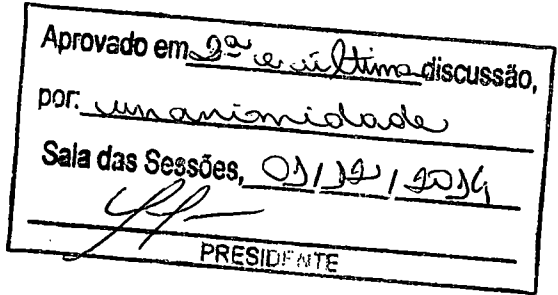 Aprovado em 2ª e última discussão,
por: unanimidade
Sala das Sessões, 01/12/2014
PRESIDENTE